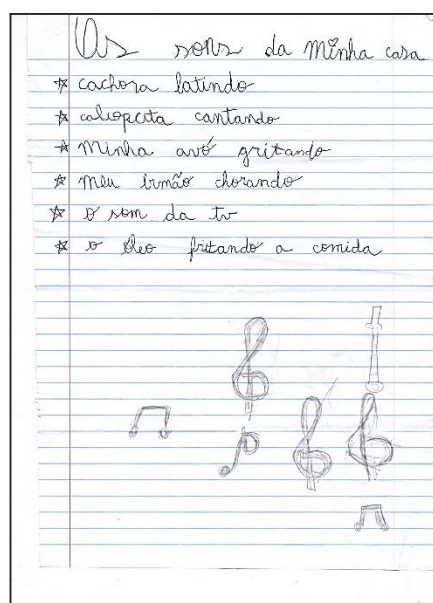 Os sons da minha casa
☆ cachora latindo
☆ calopcita cantando
☆ Minha avó gritando
☆ meu irmão chorando
☆ o som da tv
☆ o óleo fritando a comida